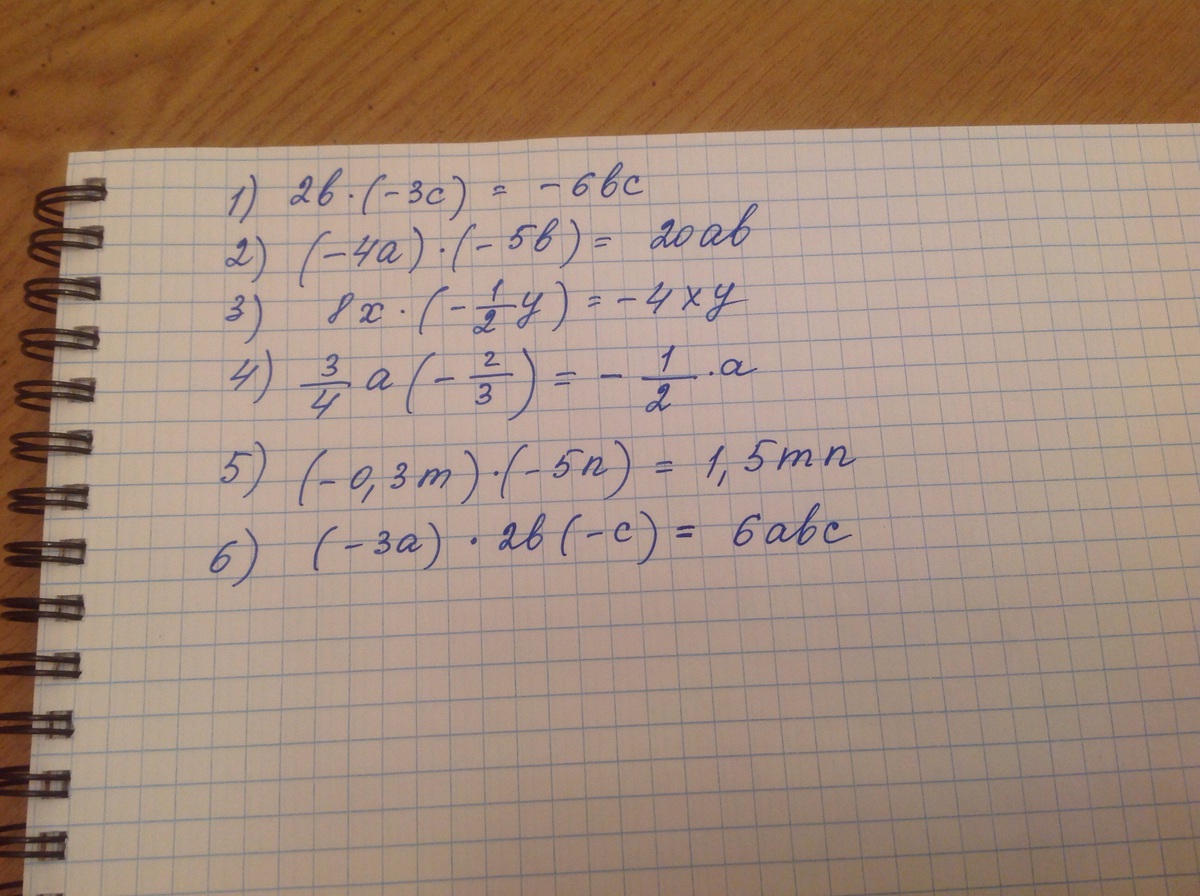 1) 2b·(-3c) = -6bc
2) (-4a)·(-5b) = 20ab
3) 8x·(-1/2y) = -4xy
4) 3/4 a(-2/3) = -1/2·a
5) (-0,3m)·(-5n) = 1,5mn
6) (-3a)·2b(-c) = 6abc